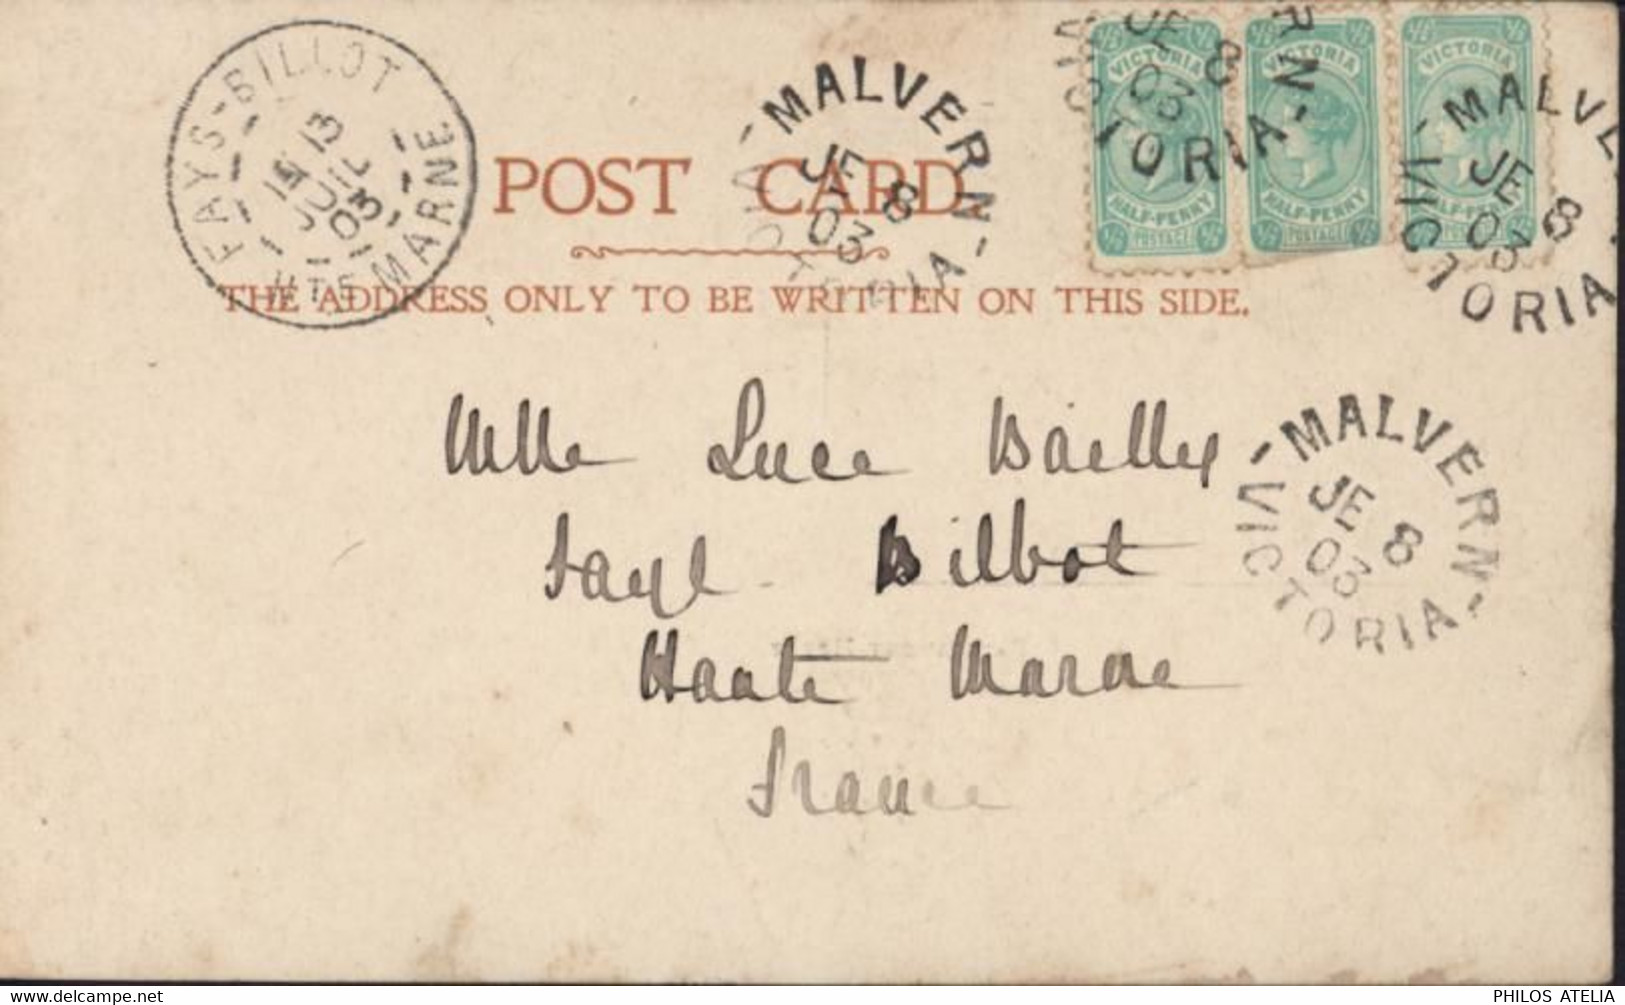 FAYS-BILLOT
13
JUIL
03
HTE MARNE
POST CARD.
THE ADDRESS ONLY TO BE WRITTEN ON THIS SIDE.
MALVERN
JE 8
03
VICTORIA
JE 8
03
VICTORIA
VICTORIA
HALF-PENNY
POSTAGE
VICTORIA
HALF-PENNY
POSTAGE
VICTORIA
MALVERN
JE 8
03
VICTORIA
Mlle Luce Bailly
Fayl Billot
Haute Marne
France
MALVERN
JE 8
03
VICTORIA
PHILOS ATELIA